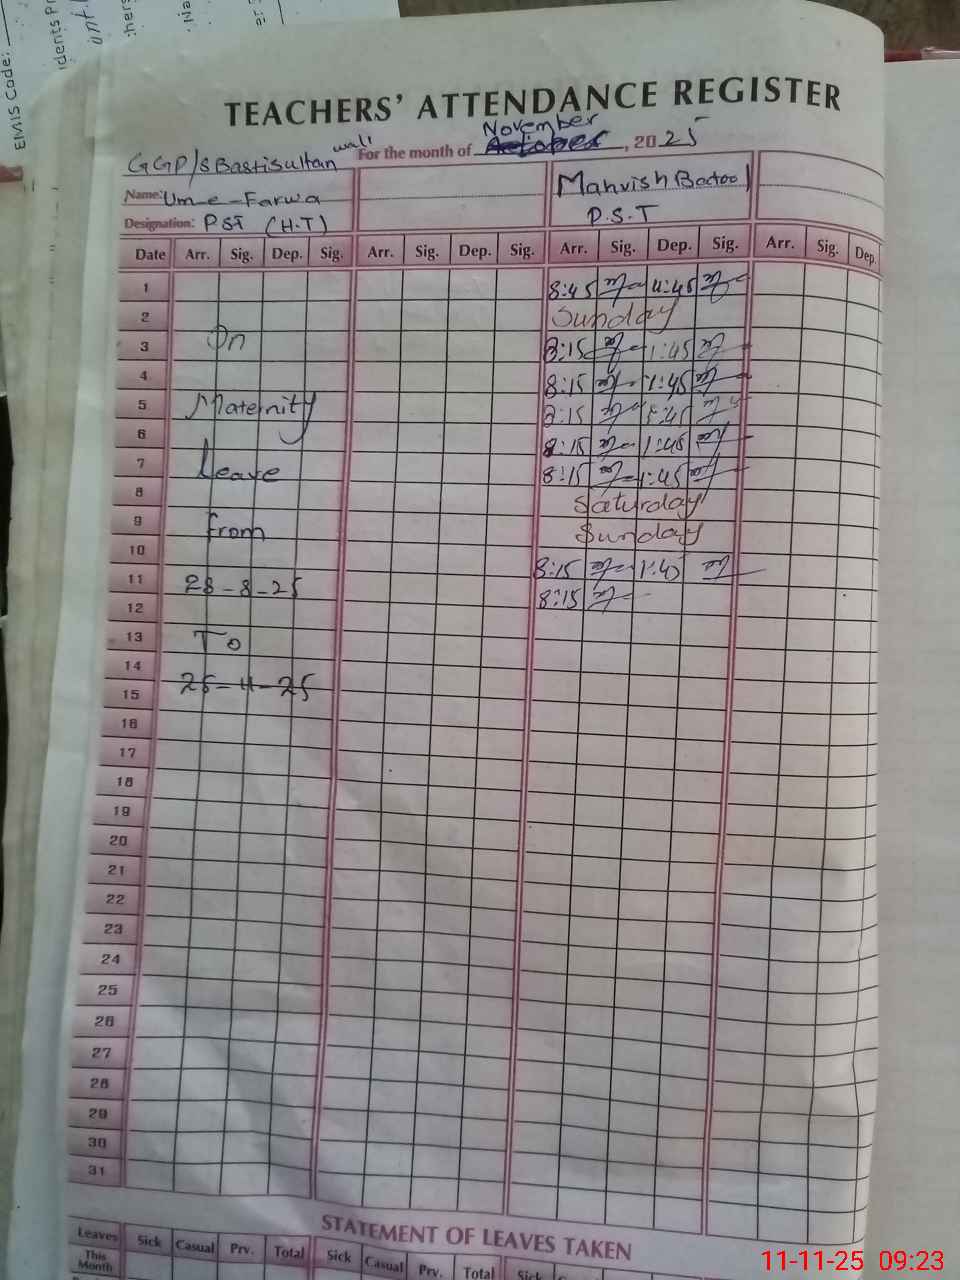 EMIS Code:
TEACHERS' ATTENDANCE REGISTER
November
GGP/S Bastisultan wali For the month of October, 2025
Name: Um-e-Farwa Mahvish Batool
Designation: PST (H.T) P.S.T
Date Arr. Sig. Dep. Sig. Arr. Sig. Dep. Sig. Arr. Sig. Dep. Sig. Arr. Sig. Dep.
1 8:45 4:45
2 Sunday
3 On 8:15 1:45
4 8:15 1:45
5 Maternity 8:15 1:45
6 8:15 1:45
7 Leave 8:15 1:45
8 Saturday
9 From Sunday
10 8:15 1:45
11 28-8-25 8:15
12
13 To
14
15 25-11-25
16
17
18
19
20
21
22
23
24
25
26
27
28
29
30
31
STATEMENT OF LEAVES TAKEN
Leaves Sick Casual Prv. Total Sick Casual Prv. Total Sick
This Month
11-11-25 09:23